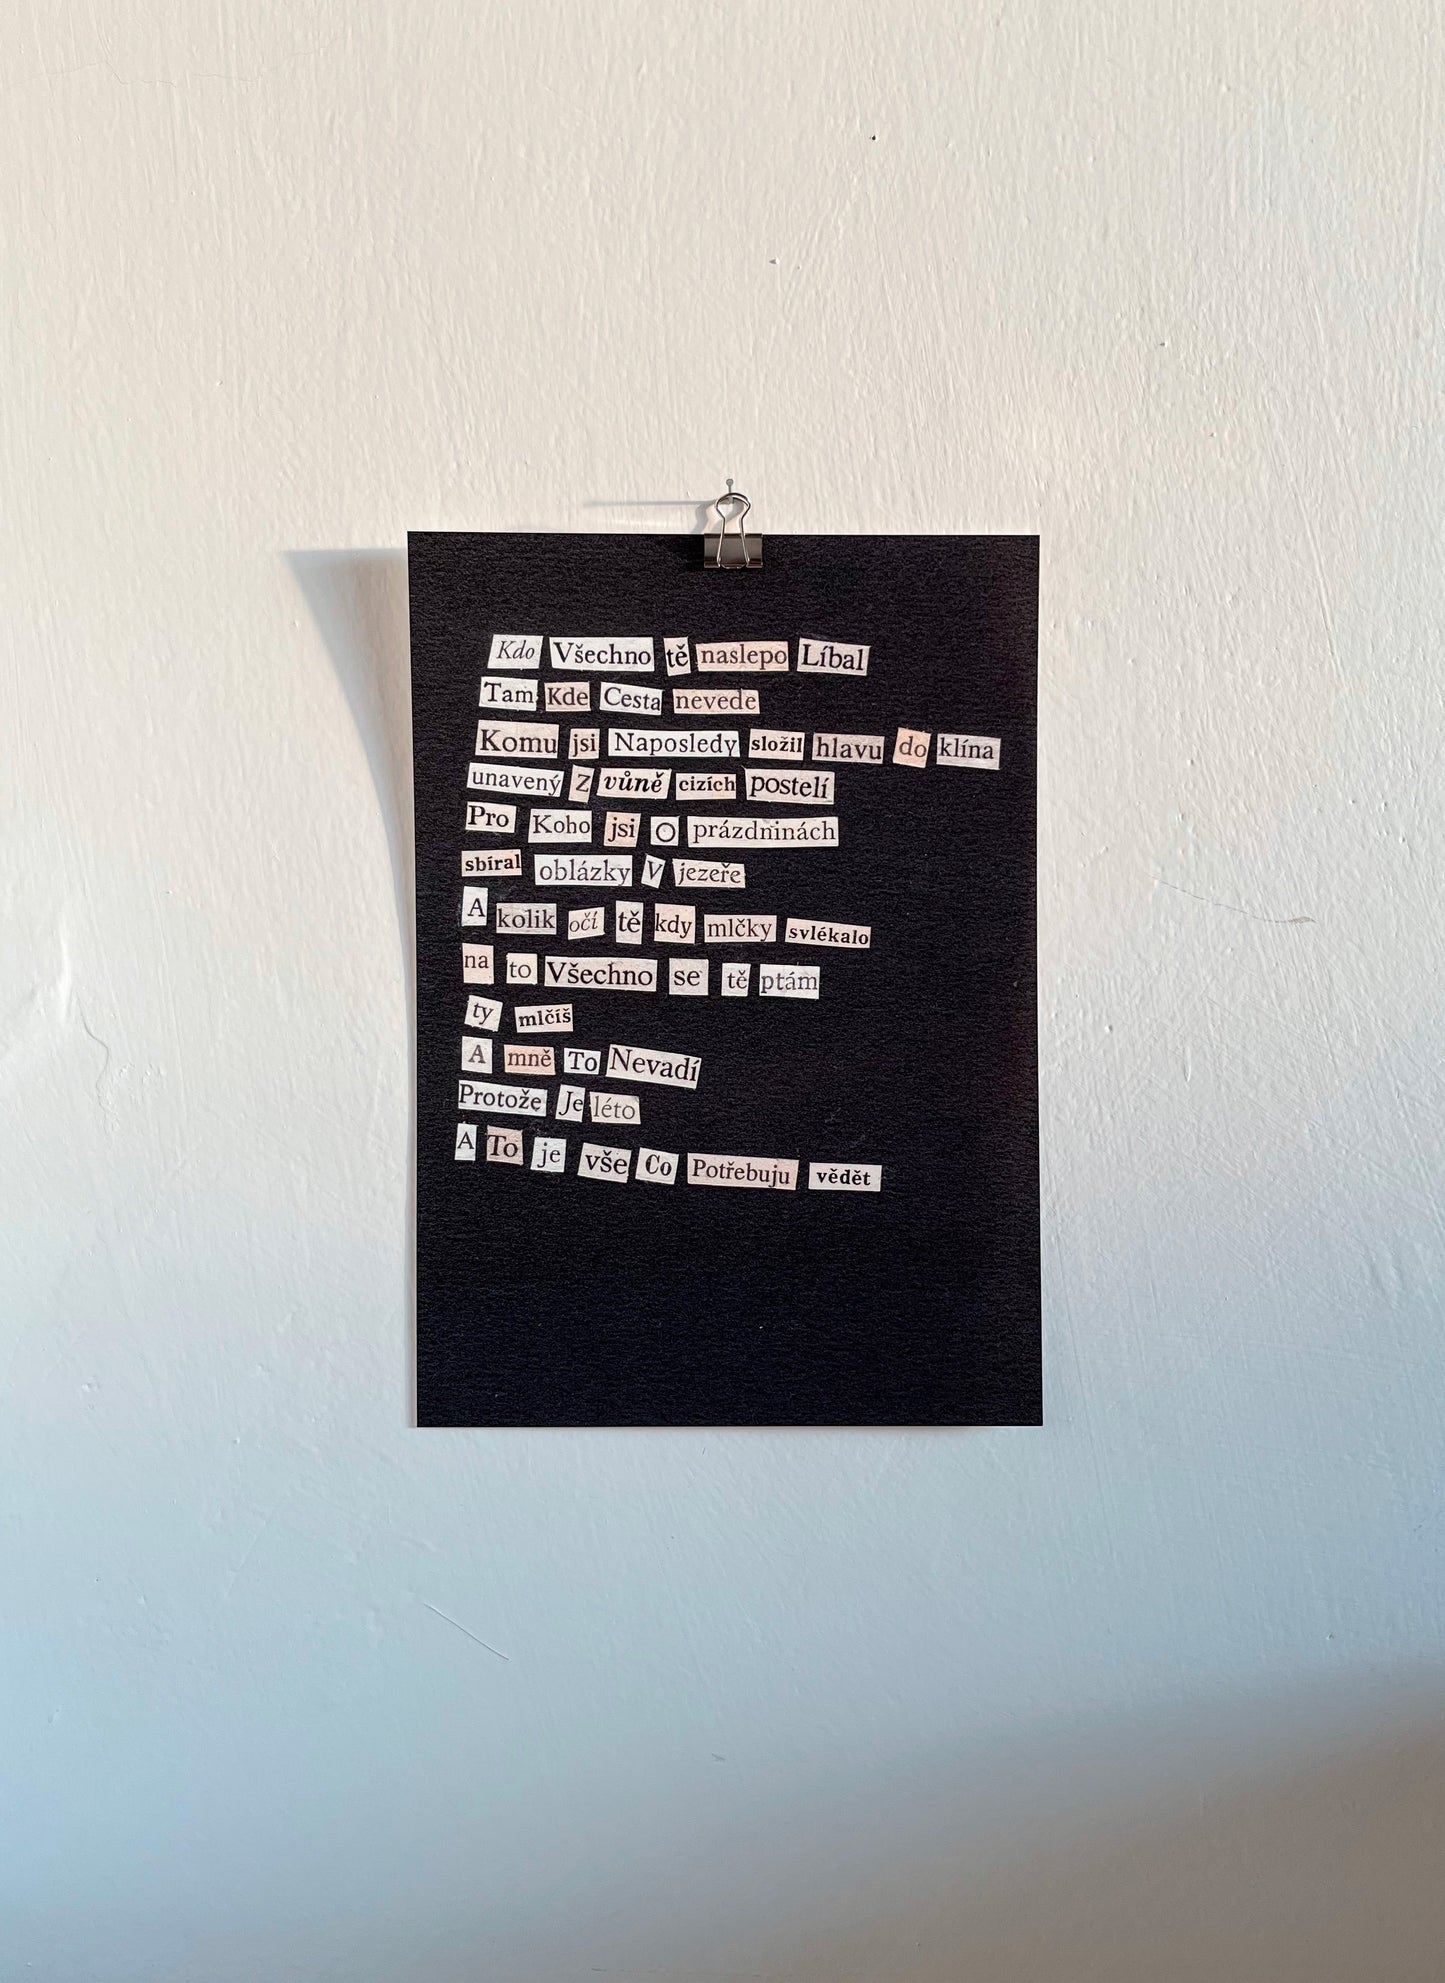 Kdo Všechno tě naslepo Líbal
Tam Kde Cesta nevede
Komu jsi Naposledy složil hlavu do klína
unavený Z vůně cizích postelí
Pro Koho jsi O prázdninách
sbíral oblázky V jezeře
A kolik očí tě kdy mlčky svlékalo
na to Všechno se tě ptám
ty mlčíš
A mně To Nevadí
Protože Je léto
A To je vše Co Potřebuju vědět